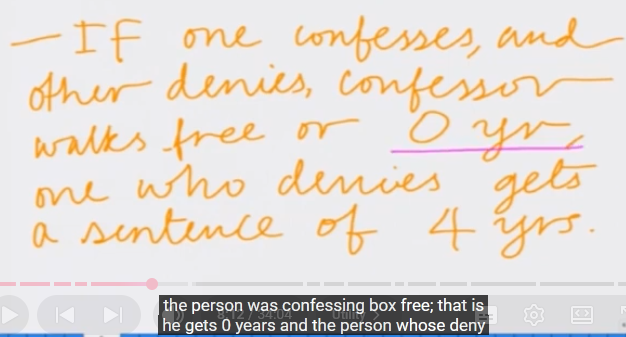 — If one confesses, and
other denies, confessor
walks free or 0 yr,
one who denies gets
a sentence of 4 yrs.
the person was confessing box free; that is
8:12 / 34:04 Utility >
he gets 0 years and the person whose deny